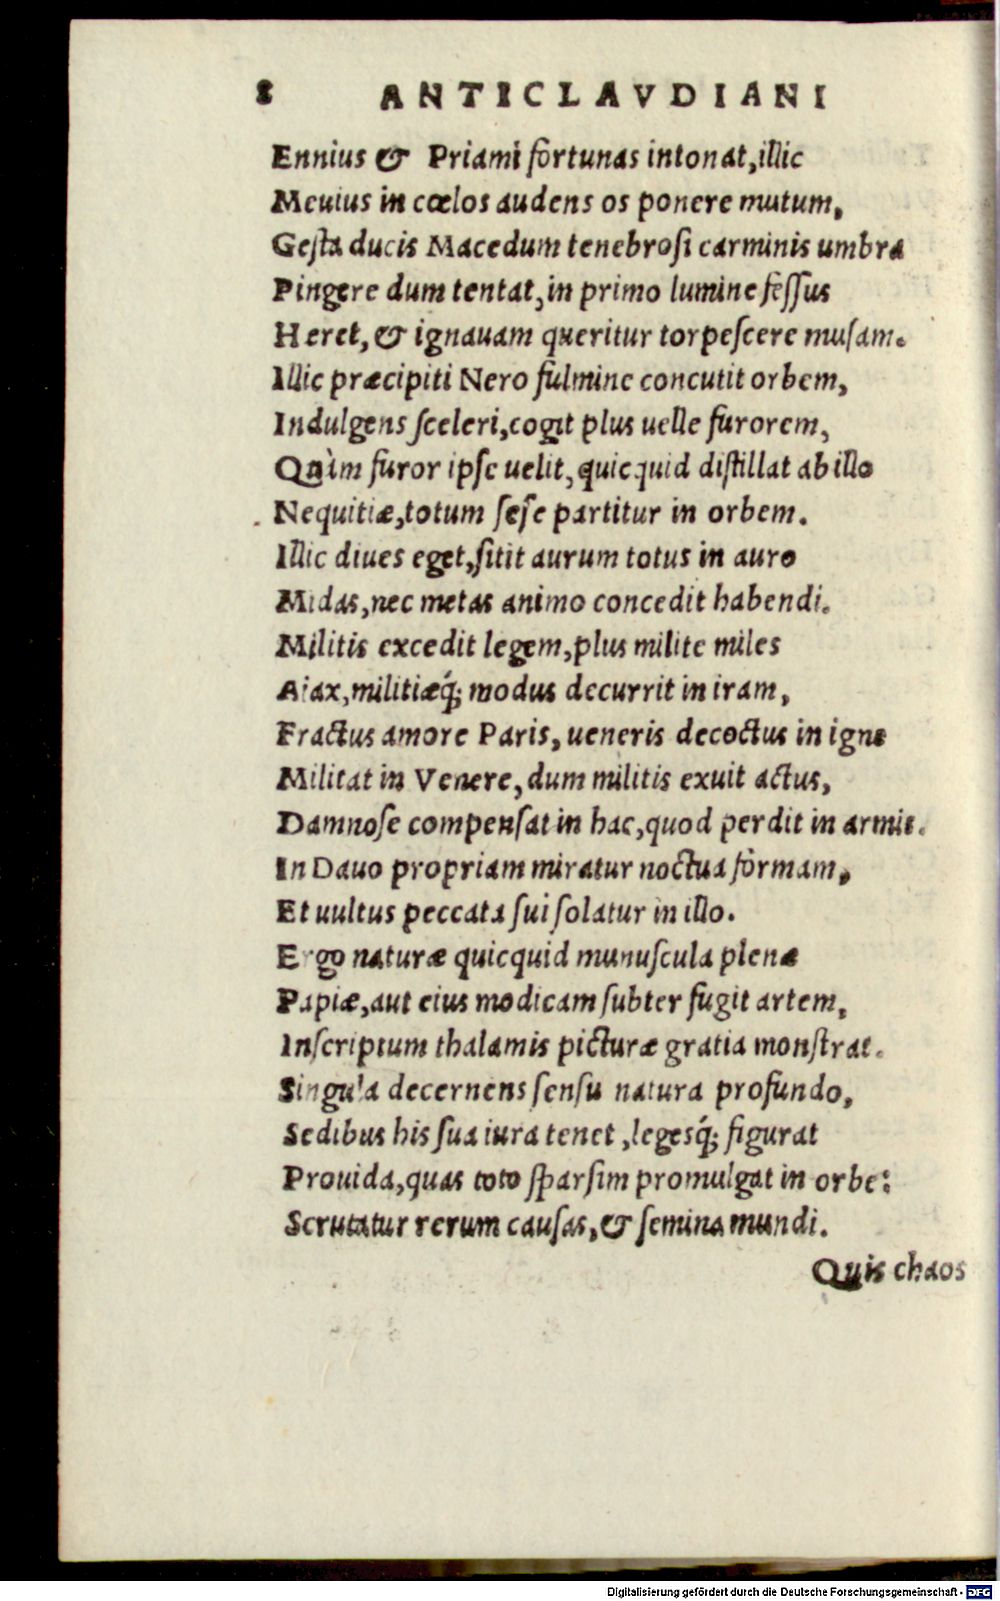 8 ANTICLAVDIANI
Ennius & Priami fortunas intonat, illic
Meuius in cœlos audens os ponere mutum,
Gesta ducis Macedum tenebrosi carminis umbra
Pingere dum tentat, in primo lumine fessus
Heret, & ignauam queritur torpescere musam.
Illic præcipiti Nero fulmine concutit orbem,
Indulgens sceleri, cogit plus uelle furorem,
Quàm furor ipse uelit, quicquid distillat ab illo
Nequitiæ, totum sese partitur in orbem.
Illic diues eget, sitit aurum totus in auro
Midas, nec metas animo concedit habendi.
Militis excedit legem, plus milite miles
Aiax, militiæq́; modus decurrit in iram,
Fractus amore Paris, ueneris decoctus in igne
Militat in Venere, dum militis exuit actus,
Damnose compensat in hac, quod perdit in armis.
In Dauo propriam miratur noctua formam,
Et uultus peccata sui solatur in illo.
Ergo naturæ quicquid munuscula plenæ
Papiæ, aut eius modicam subter fugit artem,
Inscriptum thalamis picturæ gratia monstrat.
Singula decernens sensu natura profundo,
Sedibus his sua iura tenet, legesq́; figurat
Prouida, quas toto sparsim promulgat in orbe:
Scrutatur rerum causas, & semina mundi.
Quis chaos
Digitalisierung gefördert durch die Deutsche Forschungsgemeinschaft - DFG